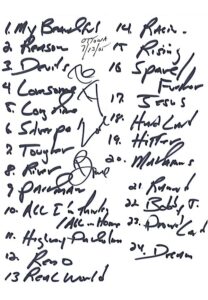 1. My Beautiful
2. Reason
OTTAWA
7/13/05
3. Devils
4. Lonesome
5. Long Time
6. Silver Pa
7. Tougher
8. River
9. Paceman
10. ALL I'm thinkg
/ALL in Home
11. Highway Patrolman
12. Reno
13 Real World
14. Racin
15 Rising
16 Spare/
Further
17 Jesus
18. Hard Land
19. Hitter
20. Matamoros
21 Ramrod
22 Bobby J.
23. Promised
Land
24. Dream